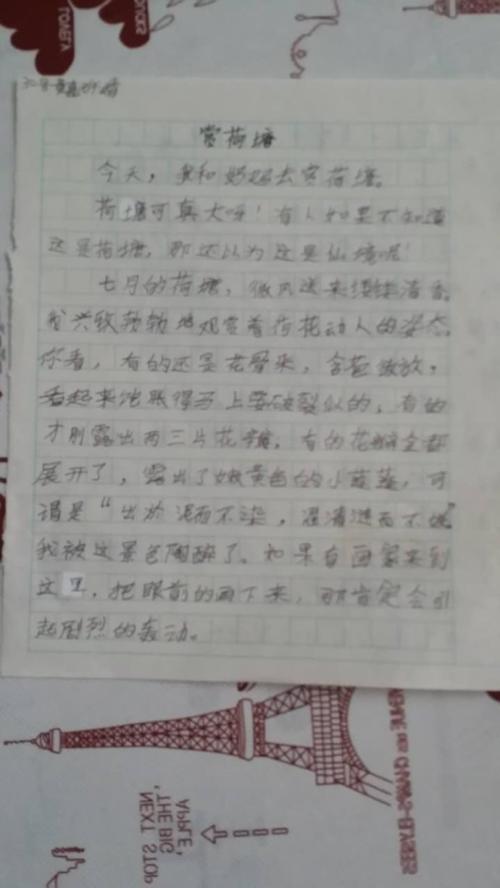 赏荷塘
今天，我和奶奶去赏荷塘。
荷塘可真大呀！有人如果不知道
这是荷塘，那还以为这是仙境呢！
七月的荷塘，微风送来缕缕清香。
我兴致勃勃地观赏着荷花动人的姿态。
你看，有的还是花骨朵，含苞欲放，
看起来饱胀得马上要破裂似的，有的
才刚露出两三片花瓣，有的花瓣全都
展开了，露出了嫩黄色的小莲蓬，可
谓是“出淤泥而不染，濯清涟而不妖”
我被这景色陶醉了。如果有画家来到
这里，把眼前的画下来，那肯定会引
起剧烈的轰动。
APPLE,
THE BIG
NEXT STOP